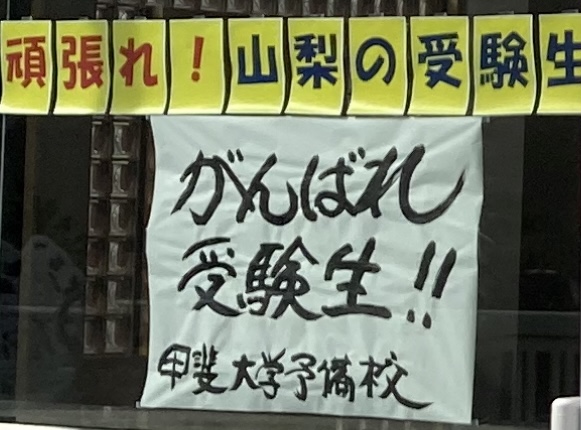 頑張れ！山梨の受験生
がんばれ
受験生!!
甲斐大学予備校